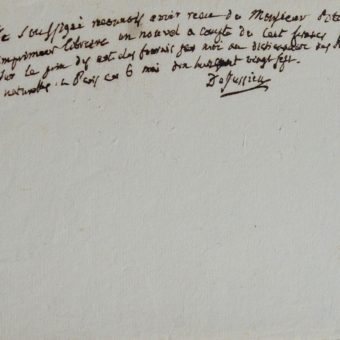 Je soussigné reconnais avoir reçu de Monsieur
imprimeur libraire un nouvel a compte de Cent francs
sur le prix des articles fournis par moi au dictionnaire des
naturelles. a Paris ce 6 mai dix huit cent vingt sept.
De Jussieu